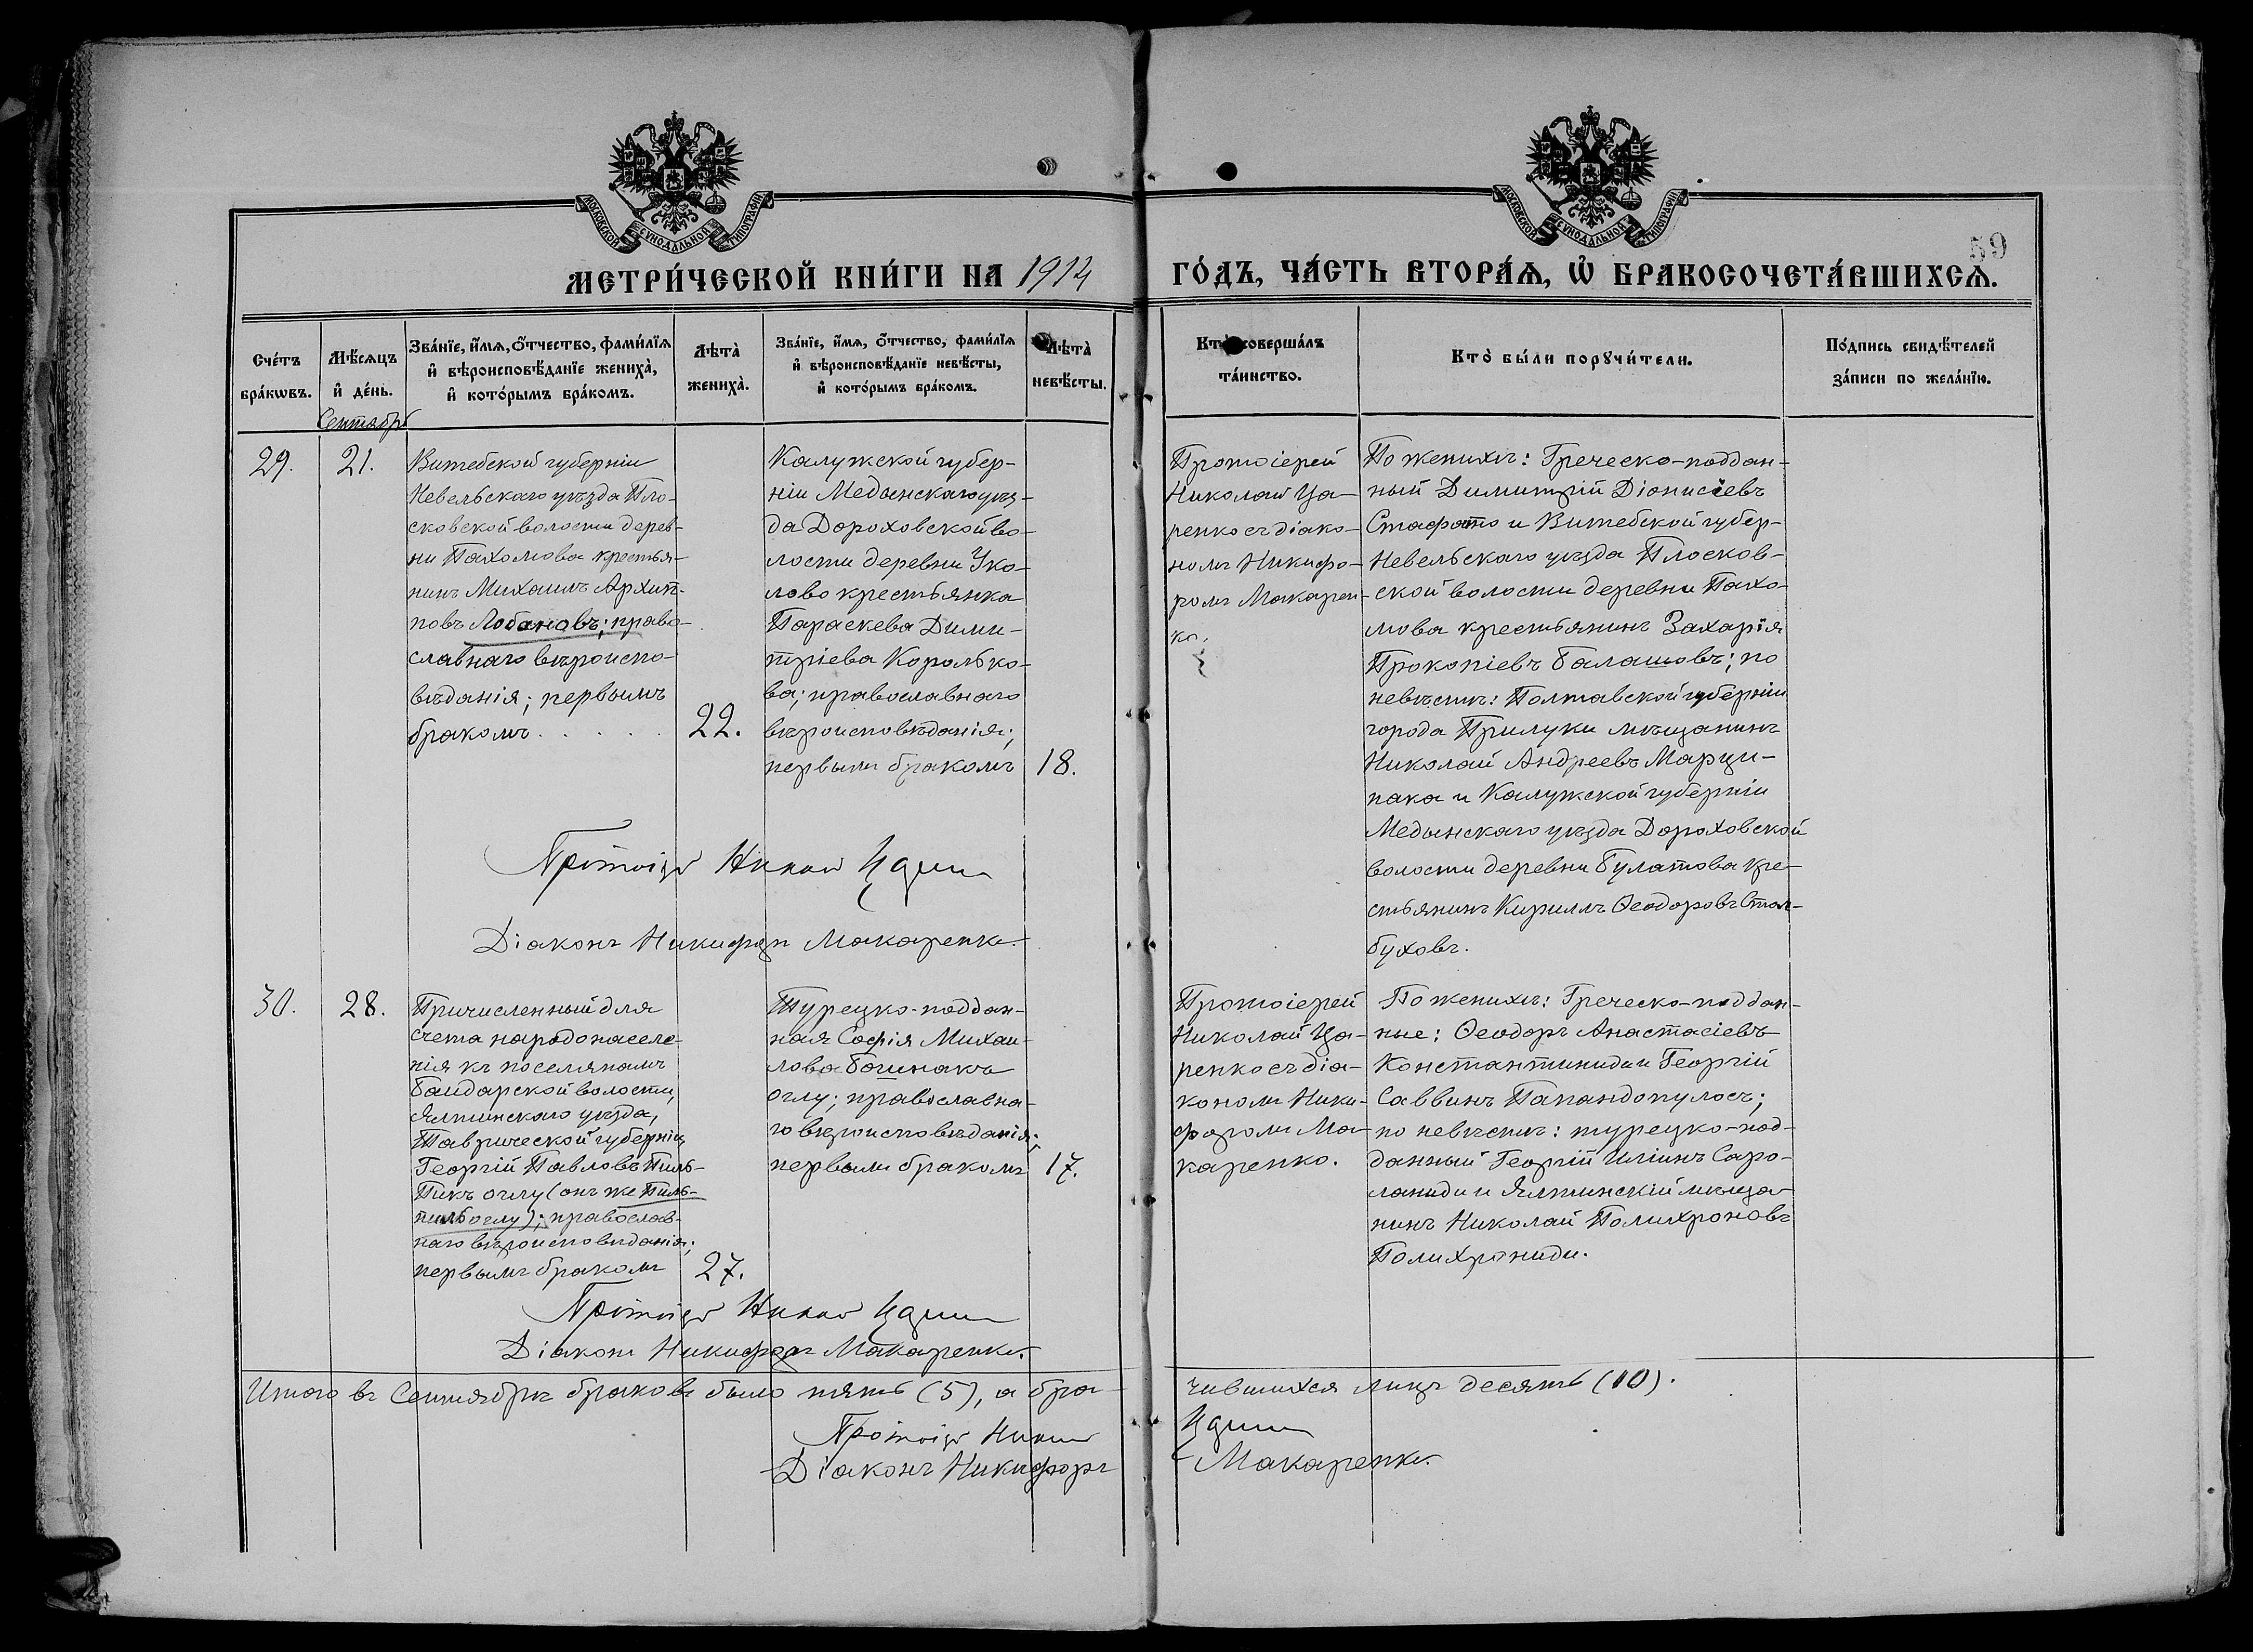 МОСКОВСКОЙ СѴНОДАЛЬНОЙ ТИПОГРАФІИ
МОСКОВСКОЙ СѴНОДАЛЬНОЙ ТИПОГРАФІИ
59
МЕТРИ́ЧЕСКОЙ КНИ́ГИ НА 1914
ГО́ДЪ, ЧА́СТЬ ВТОРА́Ѧ, Ѡ҆ БРАКОСОЧЕТА́ВШИХСѦ.
Сче́тъ бра́кѡвъ.
Мѣ́сѧцъ и҆ де́нь.
Зва́нїе, и҆́мѧ, ѻ҆́тчество, фами́лїѧ
и҆ вѣроисповѣ́данїе жениха̀,
и҆ кото́рымъ бра́комъ.
Лѣта̀ жениха̀.
Зва́нїе, и҆́мѧ, ѻ҆́тчество, фами́лїѧ
и҆ вѣроисповѣ́данїе невѣ́сты,
и҆ кото́рымъ бра́комъ.
Лѣта̀ невѣ́сты.
Кто̀ соверша́лъ
та́инство.
Кто̀ бы́ли порꙋчи́тели.
По́дпись свидѣ́телей
за́писи по жела́нїю.
Сентябрь
29.
21.
Витебской губерніи
Невельскаго уѣзда Пло-
сковской волости дерев-
ни Пахомова крестья-
нинъ Михаилъ Архип-
повъ Лобановъ; право-
славнаго вѣроиспо-
вѣданія; первымъ
бракомъ . . . . .
22.
Калужской губер-
ніи Медынскаго уѣз-
да Дороховской во-
лости деревни Уко-
лово крестьянка
Параскева Дими-
тріева Королько-
ва; православнаго
вѣроисповѣданія;
первымъ бракомъ
18.
Протоіерей
Николай Ца-
ренко съ діако-
номъ Никифо-
ромъ Макарен-
ко.
По женихѣ: Греческо-поддан-
ный Димитрій Діонисіевъ
Стафато и Витебской губер-
Невельскаго уѣзда Плосков-
ской волости деревни Пахо-
мова крестьянинъ Захарія
Прокопіевъ Балашовъ; по
невѣстѣ: Полтавской губерніи
города Прилуки мѣщанинъ
Николай Андреевъ Марци-
пака и Калужской губерніи
Медынскаго уѣзда Дороховской
волости деревни Булатова кре-
стьянинъ Кириллъ Ѳеодоровъ Стол-
буховъ.
Протоіер Никол Царен
Діаконъ Никифоръ Макаренко.
30.
28.
Причисленный для
счета народонаселе-
нія къ поселянамъ
Байдарской волости,
Ялтинскаго уѣзда,
Таврической губерніи
Георгій Павловъ Пиль-
Пикъ оглу (онъ же Пиль-
пильоглу); православ-
наго вѣроисповѣданія;
первымъ бракомъ
27.
Турецко-поддан-
ная Софія Михаи-
лова
оглу; православна-
го вѣроисповѣданія;
первымъ бракомъ
17.
Протоіерей
Николай Ца-
ренко съ діа-
кономъ Ники-
форомъ Ма-
каренко.
По женихѣ: Греческо-поддан-
ные: Ѳеодоръ Анастасіевъ
Константиниди и Георгій
Саввинъ Папандопулосъ;
по невѣстѣ: турецко-под-
данный Георгій Иліинъ Саро-
ланиди и Ялтинскій мѣща-
нинъ Николай Полихроновъ
Полихрониди.
Протоіер Никол Царен
Діаконъ Никифоръ Макаренко.
Итого въ Сентябрѣ браковъ было пять (5), а бра-
чившихся лицъ десять (10).
Протоіер Никол Царен
Діаконъ Никифоръ Макаренко.